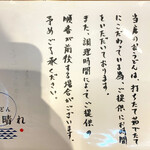 当店のおうどんは、打ちたて茹でたて
にこだわっている為、ご提供にお時間
をいただいております。
また、調理時間によって、ご提供の
順番が前後する場合がございます。
予めご了承ください。
どん
晴れ